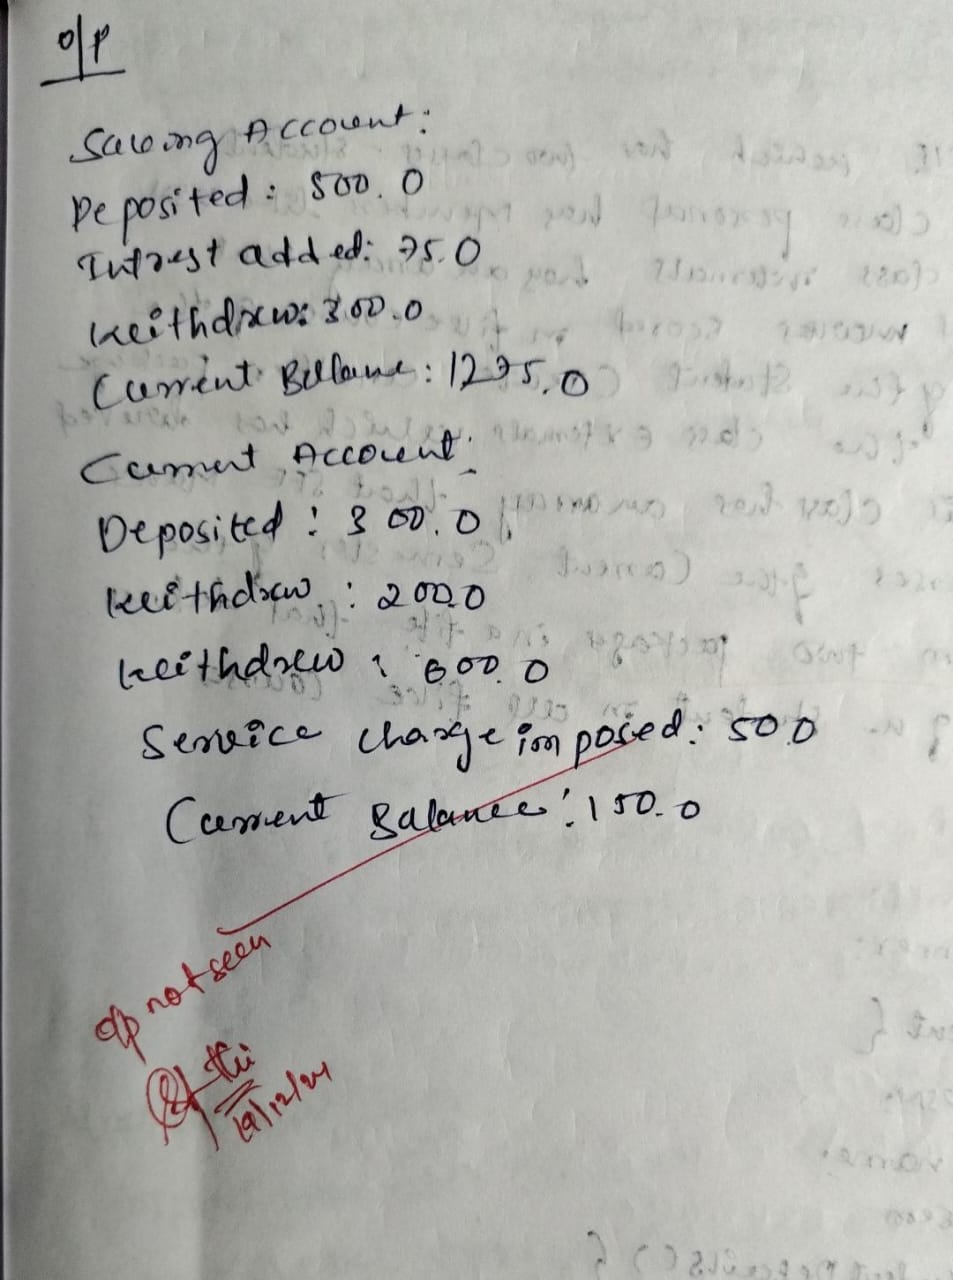 o/p
Saving Account:
Deposited: 500.0
Intrest added: 75.0
Withdrew: 300.0
Current Ballance: 1275.0
Current Account:
Deposited: 300.0
Withdrew: 200.0
Withdrew: 600.0
Service charge imposed: 50.0
Current Balance: 150.0
o/p not seen
19/12/24